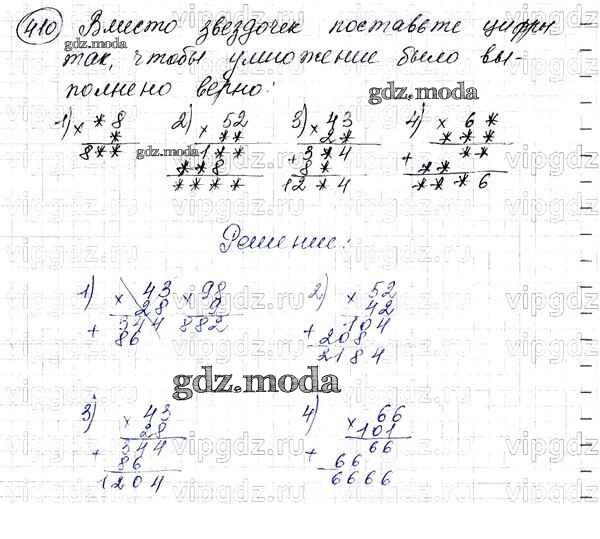 410 Вместо звездочек поставьте цифры
так, чтобы умножение было вы-
полнено верно:
gdz.moda
gdz.moda
1) × *8 2) × 52 3) × 43 4) × 6*
* ** 2* ***
8** 1** + 3*4 + **
gdz.moda
**8 8* **
**** 12*4 ***6
Решение:
1) × 43 × 98 2) × 52
28 9 42
+ 344 882 + 104
86 208
2184
gdz.moda
3) × 43 4) × 66
28 101
+ 344 + 66
86 66
1204 6666
vipgdz.ru